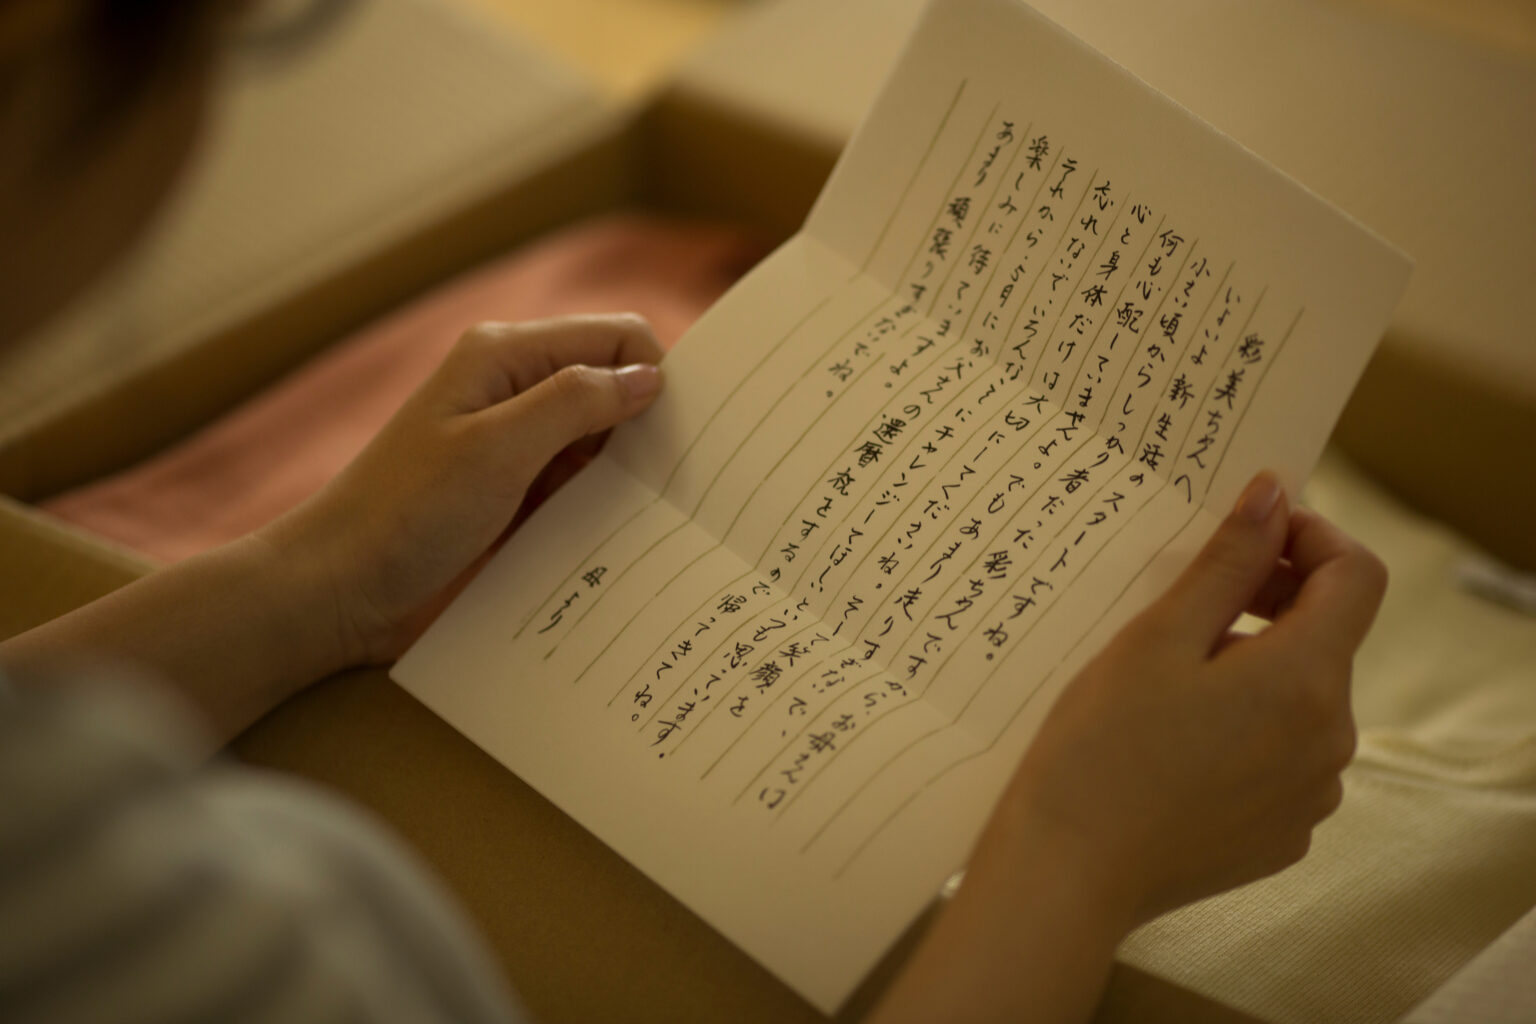 彩美ちゃんへ
いよいよ新生活のスタートですね。
小さい頃からしっかり者だった彩ちゃんですから、お母さんは
何も心配していませんよ。でもあまり走りすぎないで、
心と身体だけは大切にしてくださいね。そして笑顔を
忘れないで、いろんなことにチャレンジしてほしいといつも思っています。
それから、5月にお父さんの還暦祝をするので帰ってきてね。
楽しみに待っていますよ。
あまり頑張りすぎないでね。
母より